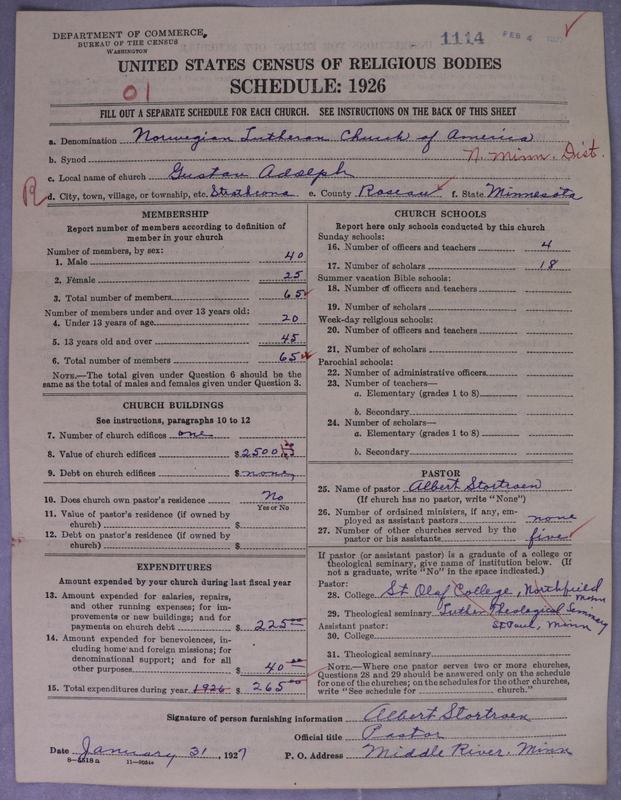 DEPARTMENT OF COMMERCE
BUREAU OF THE CENSUS
WASHINGTON
1114 FEB 4
UNITED STATES CENSUS OF RELIGIOUS BODIES
SCHEDULE: 1926
01
FILL OUT A SEPARATE SCHEDULE FOR EACH CHURCH. SEE INSTRUCTIONS ON THE BACK OF THIS SHEET
a. Denomination Norwegian Lutheran Church of America
b. Synod N. Minn. Dist.
c. Local name of church Gustav Adolph
R d. City, town, village, or township, etc. Strathcona e. County Roseau f. State Minnesota
MEMBERSHIP
Report number of members according to definition of
member in your church
Number of members, by sex:
1. Male 40
2. Female 25
3. Total number of members 65
Number of members under and over 13 years old:
4. Under 13 years of age 20
5. 13 years old and over 45
6. Total number of members 65
NOTE.—The total given under Question 6 should be the
same as the total of males and females given under Question 3.
CHURCH BUILDINGS
See instructions, paragraphs 10 to 12
7. Number of church edifices one
8. Value of church edifices $2500
9. Debt on church edifices $none
10. Does church own pastor's residence No
Yes or No
11. Value of pastor's residence (if owned by
church) $
12. Debt on pastor's residence (if owned by
church) $
EXPENDITURES
Amount expended by church during last fiscal year
13. Amount expended for salaries, repairs,
and other running expenses; for im-
provements or new buildings; and for
payments on church debt $225 00
14. Amount expended for benevolences, in-
cluding home and foreign missions; for
denominational support; and for all
other purposes $40 00
15. Total expenditures during year 1926 $265 00
CHURCH SCHOOLS
Report here only schools conducted by this church
Sunday schools:
16. Number of officers and teachers 4
17. Number of scholars 18
Summer vacation Bible schools:
18. Number of officers and teachers
19. Number of scholars
Week-day religious schools:
20. Number of officers and teachers
21. Number of scholars
Parochial schools:
22. Number of administrative officers
23. Number of teachers—
a. Elementary (grades 1 to 8)
b. Secondary
24. Number of scholars—
a. Elementary (grades 1 to 8)
b. Secondary
PASTOR
25. Name of pastor Albert Stortroen
(If church has no pastor, write "None")
26. Number of ordained ministers, if any, em-
ployed as assistant pastors none
27. Number of other churches served by the
pastor or his assistants five
If pastor (or assistant pastor) is a graduate of a college or
theological seminary, give name of institution below. (If
not a graduate, write "No" in the space indicated.)
Pastor:
28. College St Olaf College, Northfield Minn
29. Theological seminary Luther Theological Seminary
Assistant pastor: St Paul, Minn
30. College
31. Theological seminary
NOTE.—Where one pastor serves two or more churches,
Questions 28 and 29 should be answered only on the schedule
for one of the churches; on the schedules for the other churches,
write "See schedule for church."
Signature of person furnishing information Albert Stortroen
Official title Pastor
Date January 31, 1927 P. O. Address Middle River, Minn